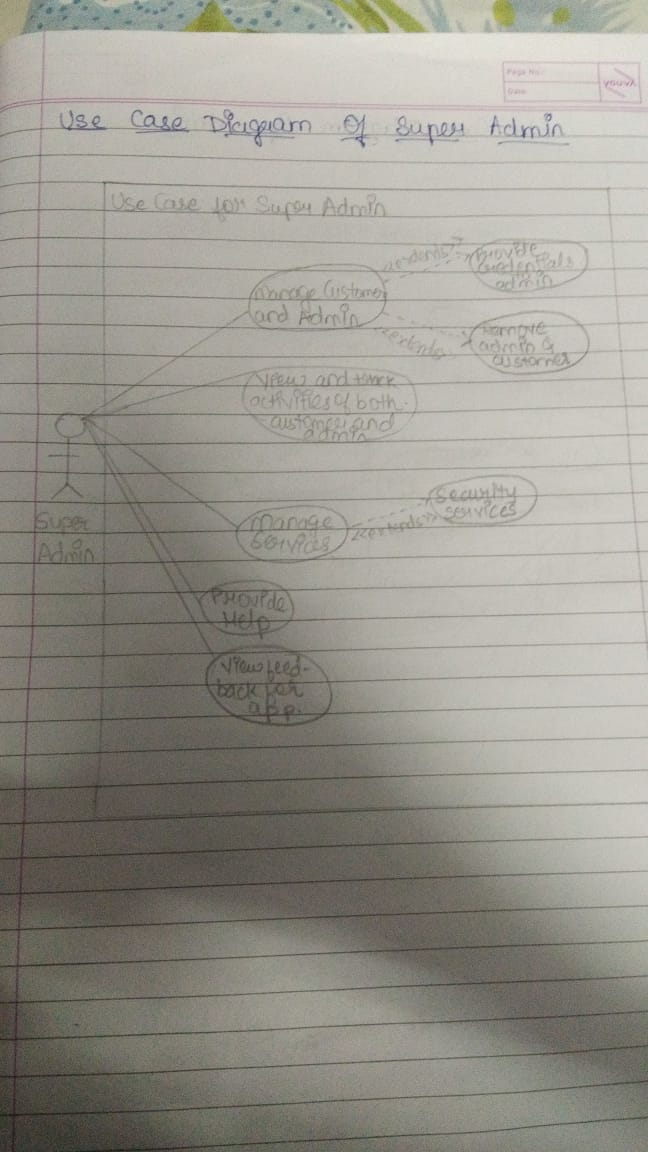 Page No.:
Date:
YOUVA
Use Case Diagram Of Super Admin
Use Case for Super Admin
Manage Customer
and Admin
<<extends>>
Provide
Credentials
admin
<<extends>>
Remove
admin &
customer
View and track
activities of both
customer and
admin
Super
Admin
Manage
Services
<<extends>>
Security
services
Provide
Help
View feed-
back for
app.